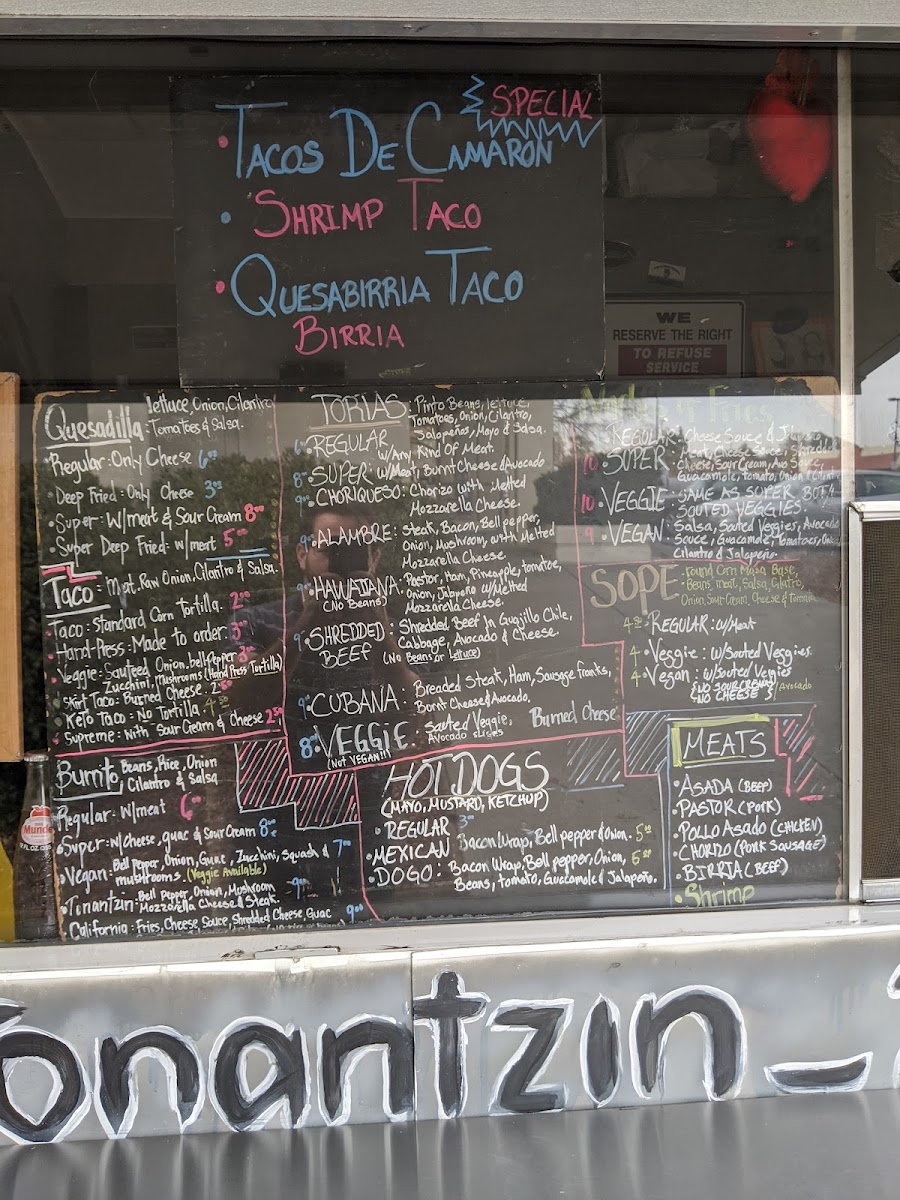 SPECIAL
• TACOS DE CAMARON
• SHRIMP TACO
• QUESABIRRIA TACO
BIRRIA
WE
RESERVE THE RIGHT
TO REFUSE
SERVICE
Quesadilla lettuce, Onion, Cilantro
Tomatoes & Salsa.
• Regular: Only Cheese 6.00
• Deep Fried: Only Cheese 3.00
• Super: w/meat & Sour Cream 8.00
• Super Deep Fried: w/meat 5.00
Taco: Meat, Raw Onion, Cilantro & Salsa.
Taco: Standard Corn Tortilla. 2.00
• Hand-Press: Made to order. 3.00
• Veggie: Sauteed Onion, bell pepper 3.00
Zucchini, Mushrooms (Hand Press Tortilla)
• Skirt Taco: Burned Cheese. 2.50
• Keto Taco: No Tortilla 4.50
• Supreme: with Sour Cream & Cheese 2.50
Burrito Beans, Rice, Onion
Cilantro & Salsa
Regular: w/meat 6.00
• Super: w/cheese, guac & Sour Cream 8.00
• Vegan: Bell Pepper, Onion, Guac, Zucchini, Squash & 7.00
mushrooms. (Veggie Available)
• Tonantzin: Bell Pepper, Onion, Mushroom
Mozzarella Cheese & Steak. 9.00
California: Fries, Cheese Sauce, Shredded Cheese, Guac 9.00
TORTAS: Pinto Beans, lettuce,
Tomatoes, Onion, Cilantro,
Jalapeños, Mayo & Salsa.
6.00 • REGULAR w/Any Kind Of Meat.
8.00 • SUPER: w/Meat, Burnt Cheese & Avocado
9.00 • CHORIQUESO: Chorizo with Melted
Mozzarella Cheese.
9.00 • ALAMBRE: Steak, Bacon, Bell pepper,
Onion, Mushroom, with Melted
Mozzarella Cheese.
9.00 • HAWAIIANA: Pastor, Ham, Pineapple, tomatoe,
(No Beans) Onion, Jalapeño w/Melted
Mozzarella Cheese.
9.00 • SHREDDED BEEF: Shredded Beef In Guajillo Chile,
Cabbage, Avocado & Cheese.
(No Beans or Lettuce)
9.00 • CUBANA: Breaded Steak, Ham, Sausage franks,
Burnt Cheese & Avocado.
8.00 • VEGGIE: Sauted Veggie, Burned Cheese
Avocado slices
(NOT VEGAN!!)
HOT DOGS
(MAYO, MUSTARD, KETCHUP)
• REGULAR 3.00
• MEXICAN Bacon Wrap, Bell pepper & Onion. 5.00
• DOGO: Bacon Wrap, Bell pepper, Onion, 6.00
Beans, tomato, Guacamole & Jalapeño.
REGULAR: Cheese Sauce &
10 • SUPER: Meat, Cheese Sauce, Shredded
Cheese, Sour Cream,
Guacamole, Tomato, Onion & Cilantro
10 • VEGGIE: SAME AS SUPER BUT w/
SOUTED VEGGIES.
9 • VEGAN: Salsa, Souted Veggies, Avocado
Souce, Guacamole, Tomatoes, Onion,
Cilantro & Jalapeño.
SOPE • Found Corn Masa Base,
• Beans, meat, Salsa, Cilatro,
Onion, Sour Cream, Cheese & Tomato
4.50 • REGULAR: w/Meat
4 • Veggie: w/Souted Veggies.
4 • Vegan: w/Souted Veggies
& NO SOUR CREAM &
• NO CHEESE Avocado
MEATS
• ASADA (BEEF)
• PASTOR (PORK)
• POLLO ASADO (CHICKEN)
• CHORIZO (PORK SAUSAGE)
• BIRRIA (BEEF)
• Shrimp
Tonantzin_